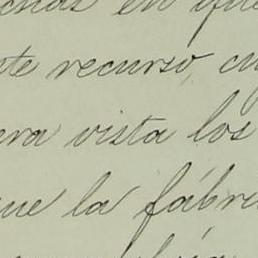 en
te recurso, cu
era vista los
que la fábri